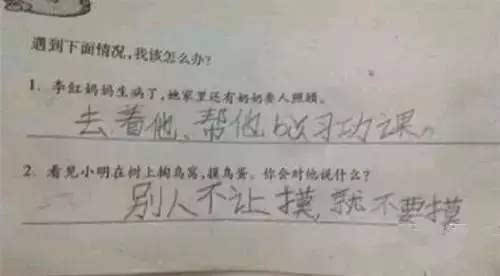 遇到下面情况,我该怎么办?
1. 李红妈妈生病了,她家里还有奶奶要人照顾。
去着他、帮他 习功课。
2. 看见小明在树上掏鸟窝,摸鸟蛋。你会对他说什么?
别人不让摸,就不要摸